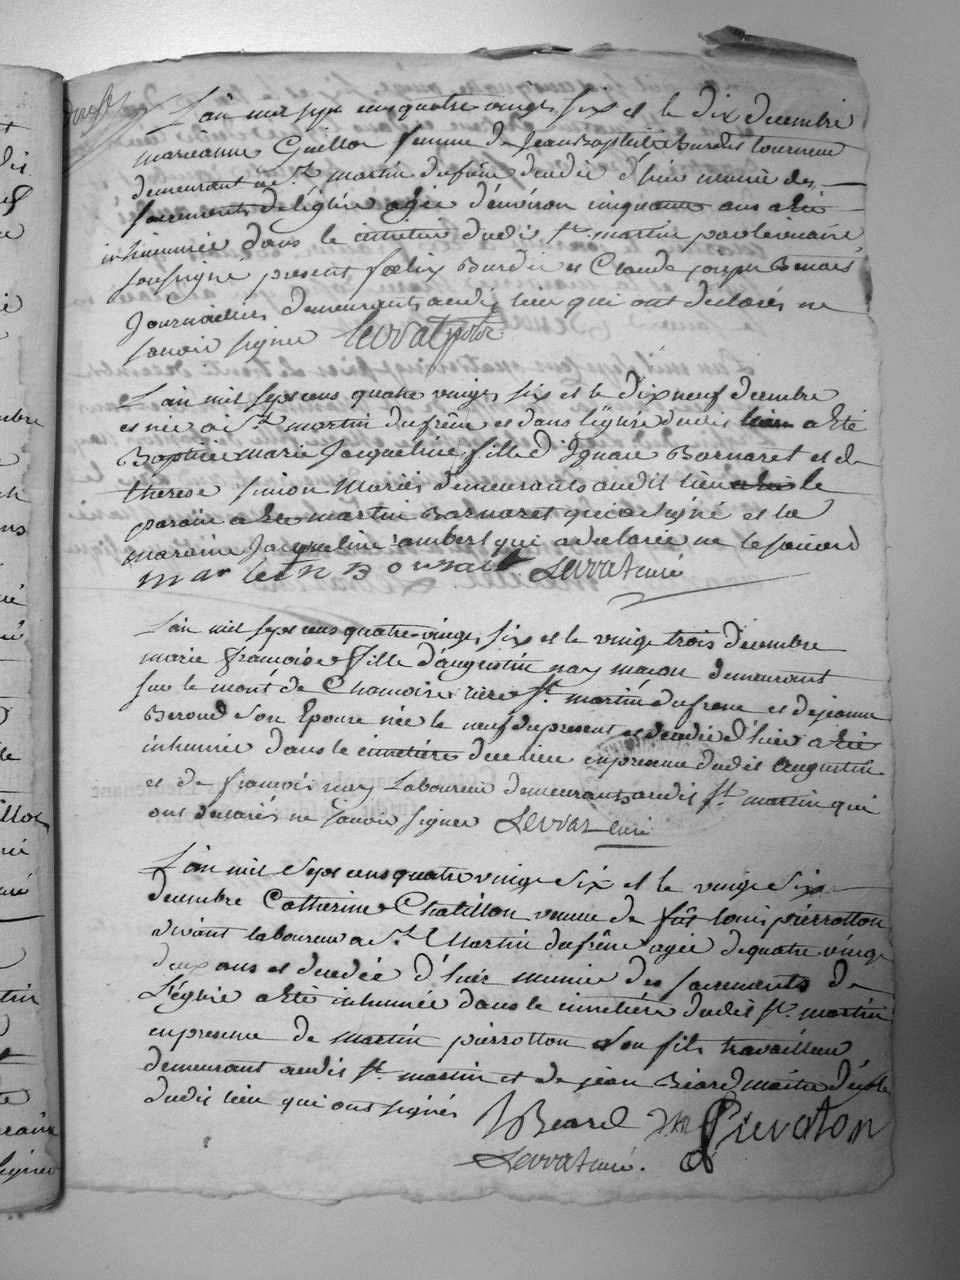 L'an mil sept cens quatre vingt six et le dix decembre
marieanne Guillot femme de Jean Baptiste Burdet tourneur
demeurant a St martin dufrêne decedée d'hier munie des
sacrements de l'église agée d'environ cinquante ans a été
inhumée dans le cimetiere dudit St martin par le vicaire
soussigné present foelix Burdet et Claude joseph Benoit
Journaliers demeurants audit lieu qui ont declarés ne
savoir signer Levrat
L'an mil sept cens quatre vingt six et le dix neuf decembre
est née a St martin dufrêne et dans l'église dudit lieu a Eté
Baptisée marie Jacqueline fille d' Barnaret et de
therese Simon Mariés demeurants audit lieu le
parain a ete martin Barnaret qui a signé et la
maraine Jacqueline Jambert qui a declarée ne le savoir
martin Levrat curé
L'an mil sept cens quatre vingt six et le vingt trois decembre
marie françoise fille d'augustin nay maçon demeurant
sur le mont de Chamoise riere St martin dufrene et de jeanne
Beroud son Epouse née le neuf du present et decedée d'hier a été
inhumée dans le cimetiere de ce lieu en presence dudit augustin
et de françois nay Laboureur demeurants audit St martin qui
ont declarés ne savoir signer Levrat curé
L'an mil sept cens quatre vingt six et le vingt six
decembre Catherine Chatillon veuve de fût Louis pierrotton
vivant laboureur a St Martin dufrêne agée de quatre vingt
deux ans et decedée d'hier munie des sacrements de
L'église a Eté inhumée dans le cimetiére dudit St martin
en presence de martin pierrotton son fils travailleur
demeurant audit St martin et de jean Béard maitre d'école
dudit lieu qui ont signés
Beard Pierraton
Levrat curé.